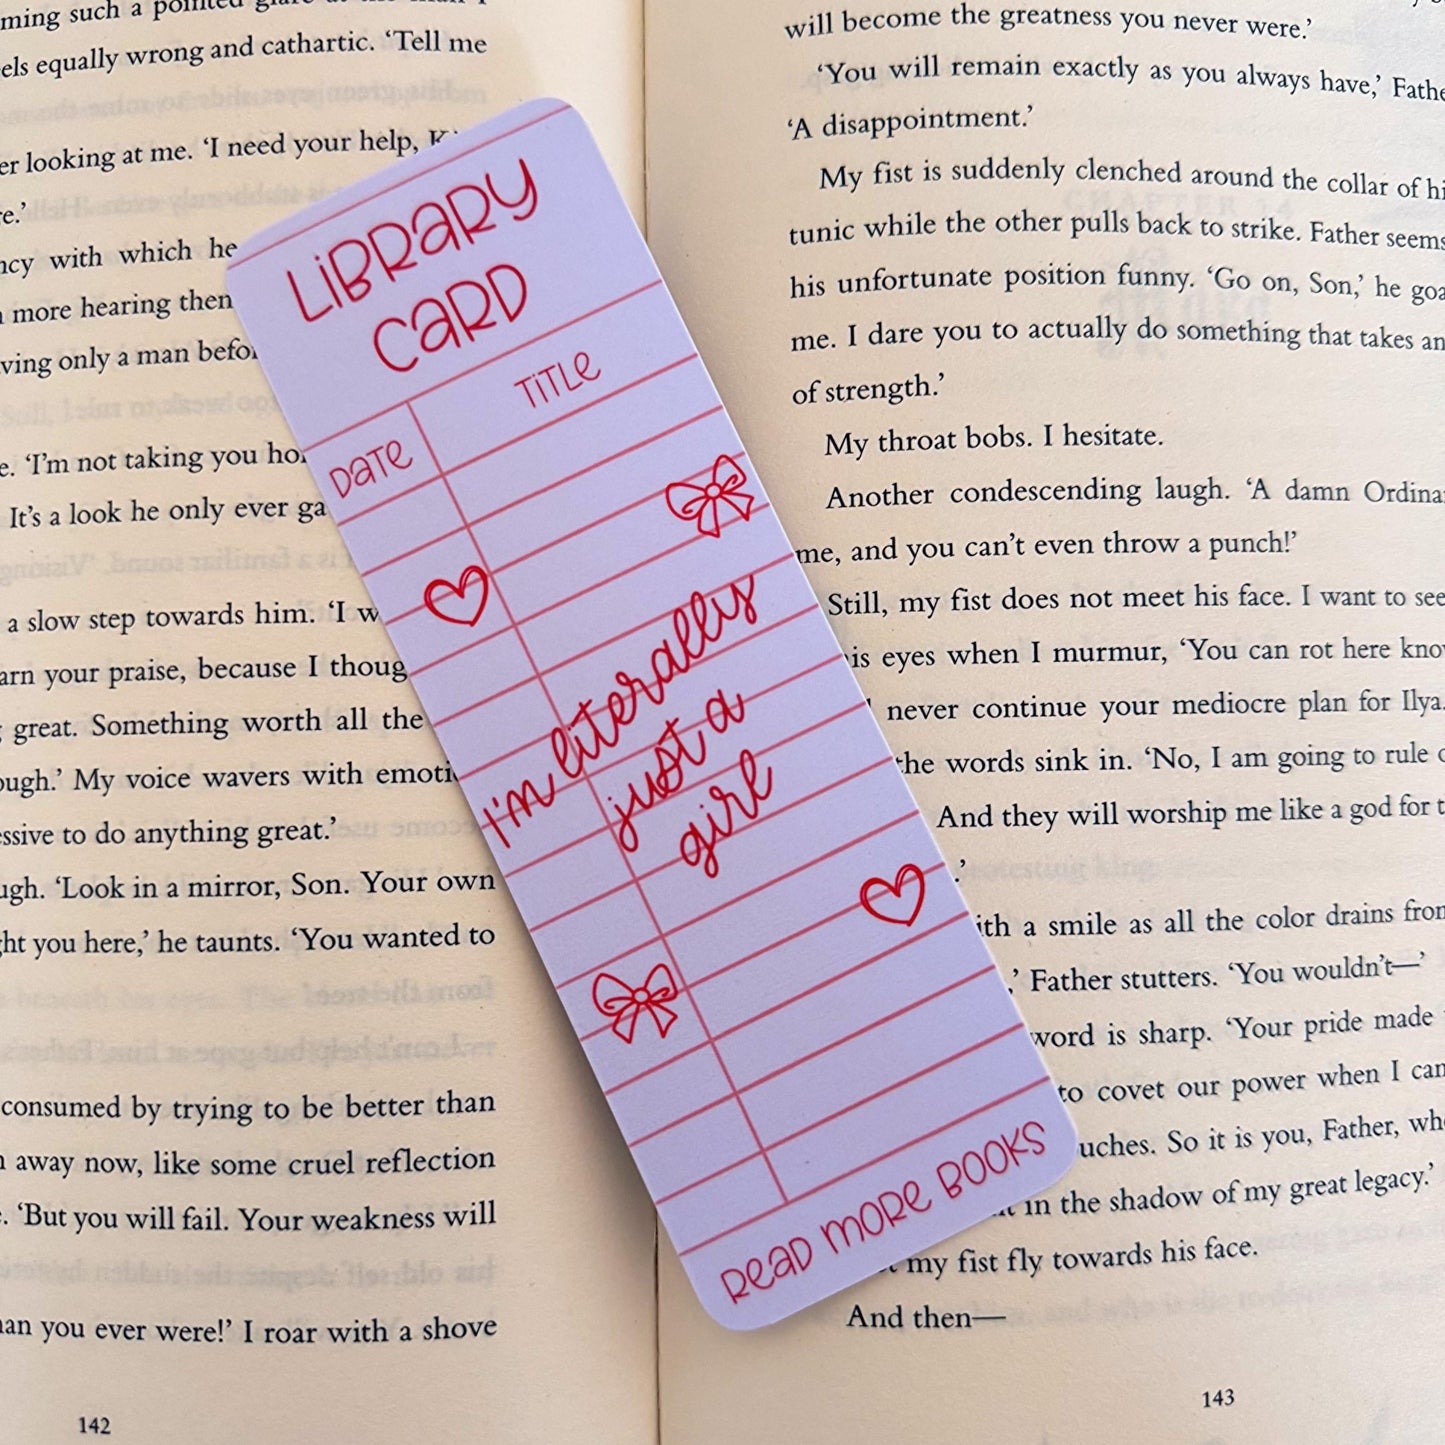 ming such a pointed
els equally wrong and cathartic. ‘Tell me
er looking at me. ‘I need your help,
re.’
ncy with which he
n more hearing then
ving only a man
e. ‘I’m not taking you
It’s a look he only ever
a slow step towards him. ‘I
arn your praise, because I
great. Something worth all the
ough.’ My voice wavers with
essive to do anything great.’
ugh. ‘Look in a mirror, Son. Your own
ght you here,’ he taunts. ‘You wanted to
consumed by trying to be better than
away now, like some cruel reflection
‘But you will fail. Your weakness will
han you ever were!’ I roar with a shove
142
LIBRARY
CARD
DATE TITLE
I'm literally
just a
girl
READ MORE BOOKS
will become the greatness you never were.’
‘You will remain exactly as you always have,’
‘A disappointment.’
My fist is suddenly clenched around the collar of
tunic while the other pulls back to strike. Father seems
his unfortunate position funny. ‘Go on, Son,’ he
me. I dare you to actually do something that takes
of strength.’
My throat bobs. I hesitate.
Another condescending laugh. ‘A damn
me, and you can’t even throw a punch!’
Still, my fist does not meet his face. I want to see
is eyes when I murmur, ‘You can rot here
never continue your mediocre plan for Ilya.
the words sink in. ‘No, I am going to rule
And they will worship me like a god for
.’
ith a smile as all the color drains from
,’ Father stutters. ‘You wouldn’t—’
word is sharp. ‘Your pride made
to covet our power when I can
uches. So it is you, Father,
in the shadow of my great legacy.’
my fist fly towards his face.
And then—
143